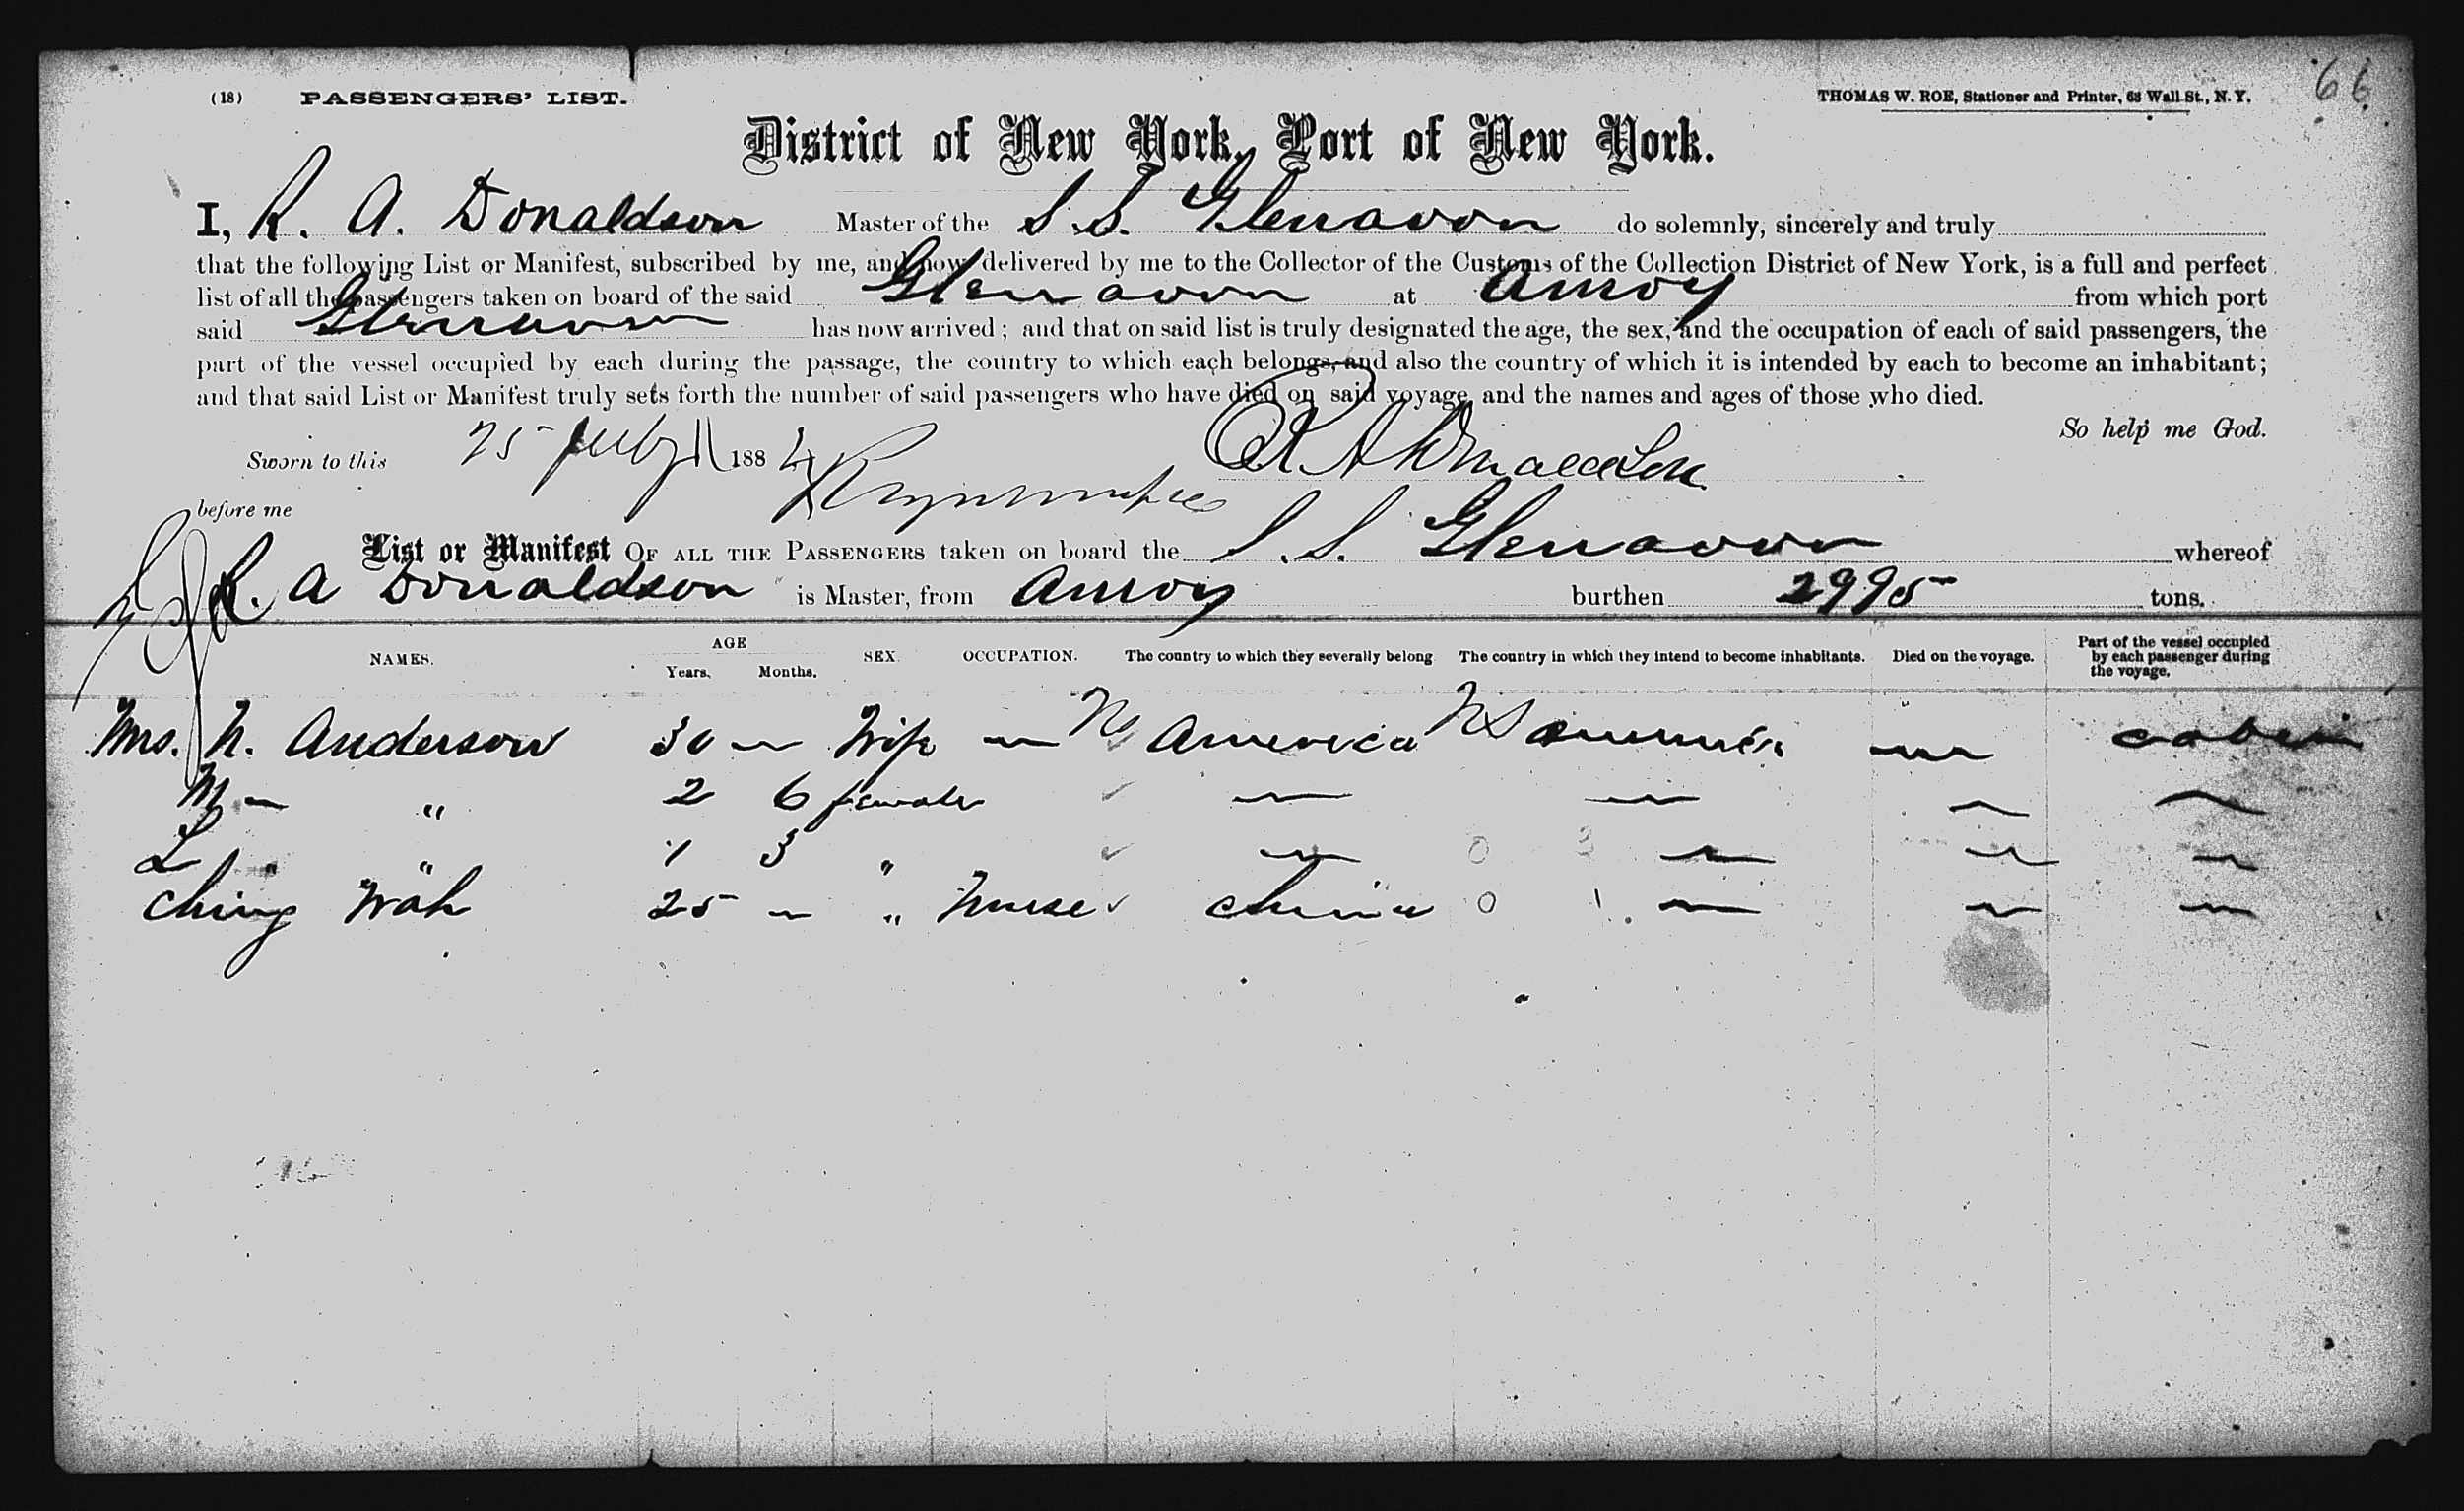 66
(18) PASSENGERS' LIST. THOMAS W. ROE, Stationer and Printer, 63 Wall St., N. Y.
District of New York, Port of New York.
I, R. A. Donaldson Master of the S.S. Glenavon do solemnly, sincerely and truly
that the following List or Manifest, subscribed by me, and now delivered by me to the Collector of the Customs of the Collection District of New York, is a full and perfect
list of all the passengers taken on board of the said Glenavon at Amoy from which port
said Glenavon has now arrived; and that on said list is truly designated the age, the sex, and the occupation of each of said passengers, the
part of the vessel occupied by each during the passage, the country to which each belongs, and also the country of which it is intended by each to become an inhabitant;
and that said List or Manifest truly sets forth the number of said passengers who have died on said voyage, and the names and ages of those who died.
So help me God.
Sworn to this 25 July 1884 R A Donaldson
before me
List or Manifest OF ALL THE PASSENGERS taken on board the S.S. Glenavon whereof
R. A Donaldson is Master, from Amoy burthen 2995 tons.
NAMES. AGE Years. Months. SEX. OCCUPATION. The country to which they severally belong The country in which they intend to become inhabitants. Died on the voyage. Part of the vessel occupied by each passenger during the voyage.
Mrs. N. Anderson 30 — Wife — N America — cabin
M — " 2 6 female — — — —
L " " 1 3 " — — — —
Ching Wah 25 — " Nurse China — — —